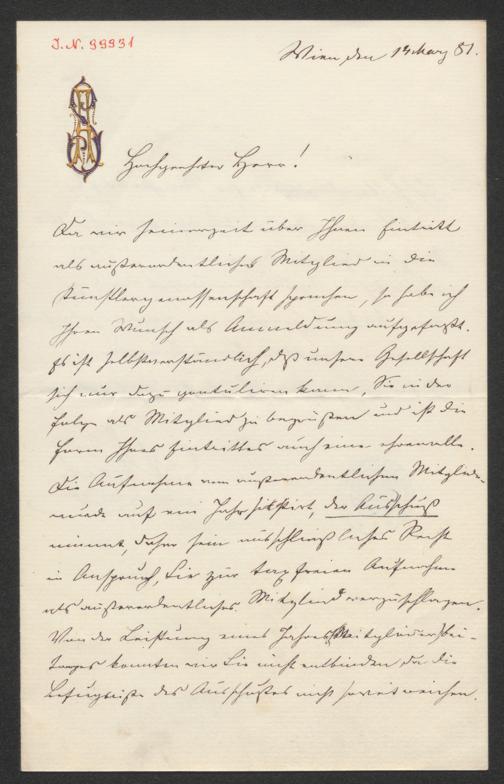 J. N. 99931
Wien den 14 März 81.
Hochgeehrter Herr!
Da wir seinerzeit über Ihren Eintritt
als außerordentliches Mitglied in die
Künstlergenossenschaft sprachen, so habe ich
Ihren Wunsch als Anmeldung aufgefaßt.
Es ist selbstverständlich, daß unsere Gesellschaft
sich nur dazu gratuliren kann, Sie in der
Folge als Mitglied zu begrüßen und ist die
Form Ihres Eintrittes auch eine ehrenvolle.
Die Aufnahme von außerordentlichen Mitglieder
wurde auf ein Jahr sistirt, der Ausschuß
nimmt, daher sein ausschließliches Recht
in Anspruch, Sie zur taxfreien Aufnahme
als außerordentliches Mitglied vorzuschlagen.
Von der Leistung eines Jahres Mitgliederbei-
trages konnten wir Sie nicht entbinden da die
Befugnisse des Ausschußes nicht soweit reichen.